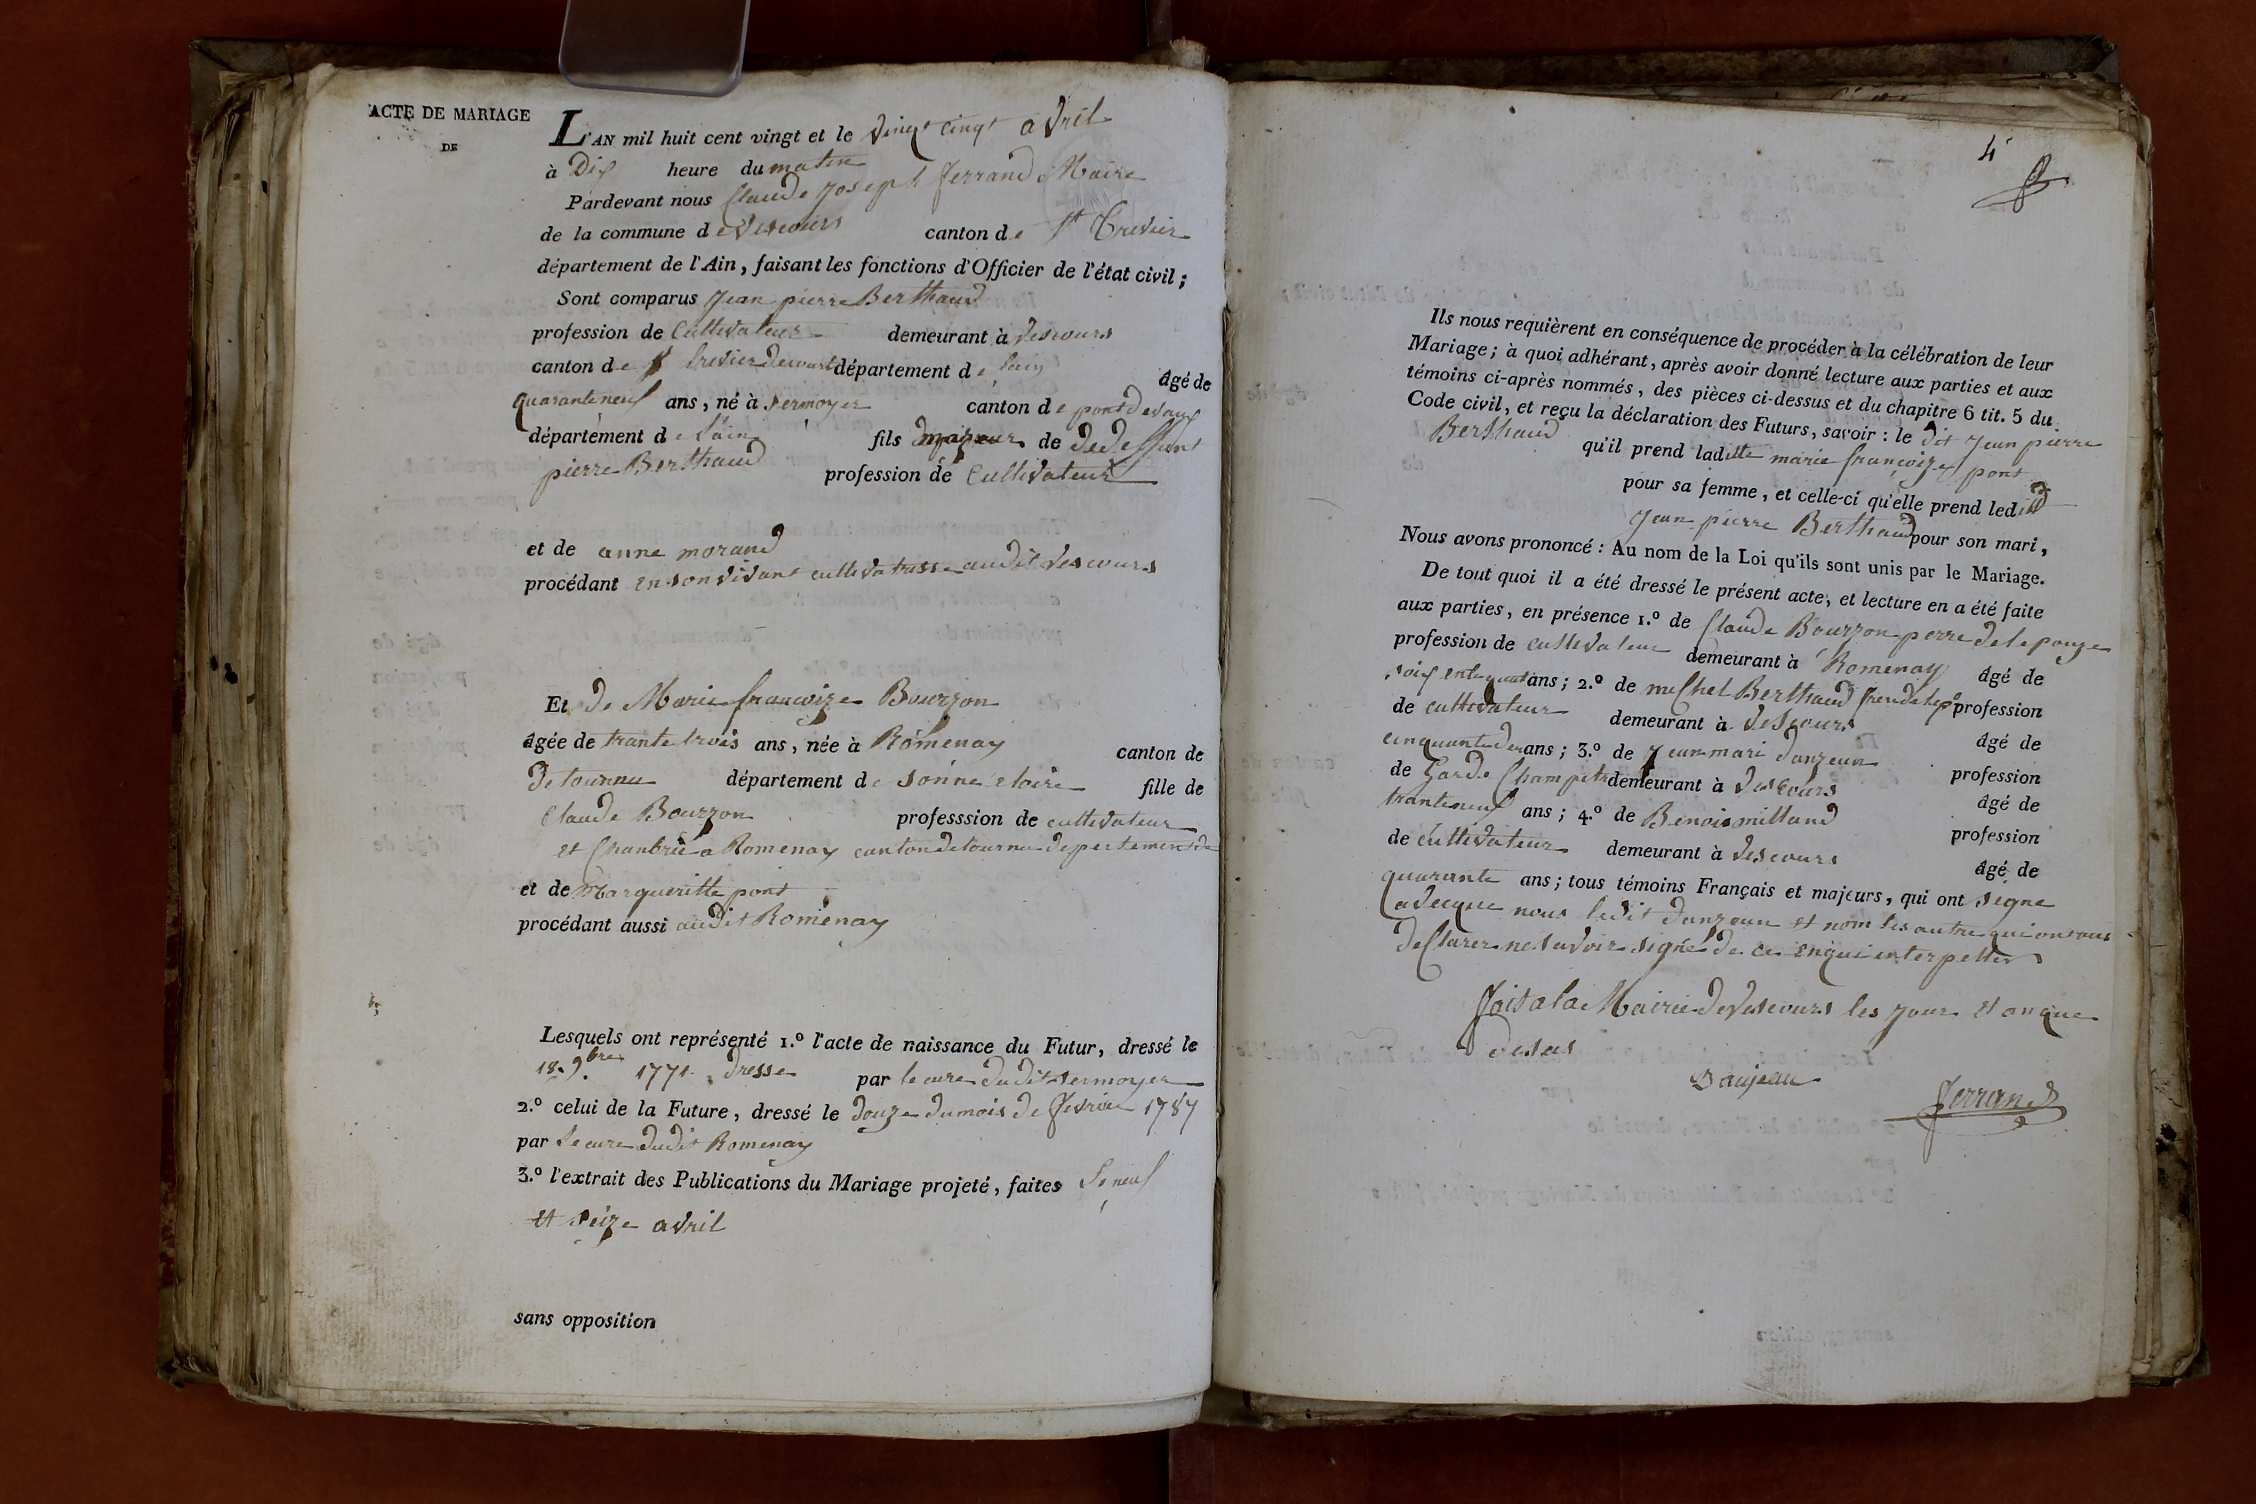 ACTE DE MARIAGE
DE
L'AN mil huit cent vingt et le vingt cinqt avril
à Dix heure du matin
Pardevant nous Claude Joseph Ferrand Maire
de la commune de Vescours canton de St Trevier
département de l'Ain, faisant les fonctions d'Officier de l'état civil ;
Sont comparus Jean pierre Berthaud
profession de Cultivateur demeurant à Vescours
canton de St trevier decourt département de lain âgé de
quaranteneuf ans, né à Sermoyer canton de pontdevaux
département de l'ain fils majeur de de deffunt
pierre Berthaud profession de Cultivateur
et de anne morand
procédant en son vivant cultivatrisse audit Vescours
Et de Marie francoize Bourzon
âgée de trante trois ans, née à Romenay canton de
De tournu département de sonne eloire fille de
Claude Bourzon professsion de cultivateur
et Chanbrie a Romenay canton de tournu depertement de
et de Margueritte pont
procédant aussi audit Romenay
Lesquels ont représenté 1.º l'acte de naissance du Futur, dressé le
18. 9.bre 1771 dresse par le cure dudit sermoyer
2.º celui de la Future, dressé le douze du mois de fevrier 1787
par le cure dudit Romenay
3.º l'extrait des Publications du Mariage projeté, faites le neuf
et seize avril
sans opposition
4
Ils nous requièrent en conséquence de procéder à la célébration de leur
Mariage ; à quoi adhérant, après avoir donné lecture aux parties et aux
témoins ci-après nommés, des pièces ci-dessus et du chapitre 6 tit. 5 du
Code civil, et reçu la déclaration des Futurs, savoir : le dit Jean pierre
Berthaud qu'il prend laditte marie françoize pont
pour sa femme, et celle-ci qu'elle prend ledit
Jean pierre Berthaud pour son mari,
Nous avons prononcé : Au nom de la Loi qu'ils sont unis par le Mariage.
De tout quoi il a été dressé le présent acte, et lecture en a été faite
aux parties, en présence 1.º de Claude Bourzon perre de lepouze
profession de cultivateur demeurant à Romenay âgé de
soixente quatre ans ; 2.º de michel Berthaud frere de lep profession
de cultivateur demeurant à Vescours âgé de
cinquante deux ans ; 3.º de Jean mari danjean profession
de Garde Champetre demeurant à Vescours âgé de
tranteneuf ans ; 4.º de Benoit milland profession
de cultivateur demeurant à Vescours âgé de
quarante ans ; tous témoins Français et majeurs, qui ont signe
avecque nous ledit danjean et nom les autre qui on tous
declarer ne savoir signé de ce enqui interpeller
fait a la Mairie de Vescours les jour et an que
dessus
Danjean
Ferrand